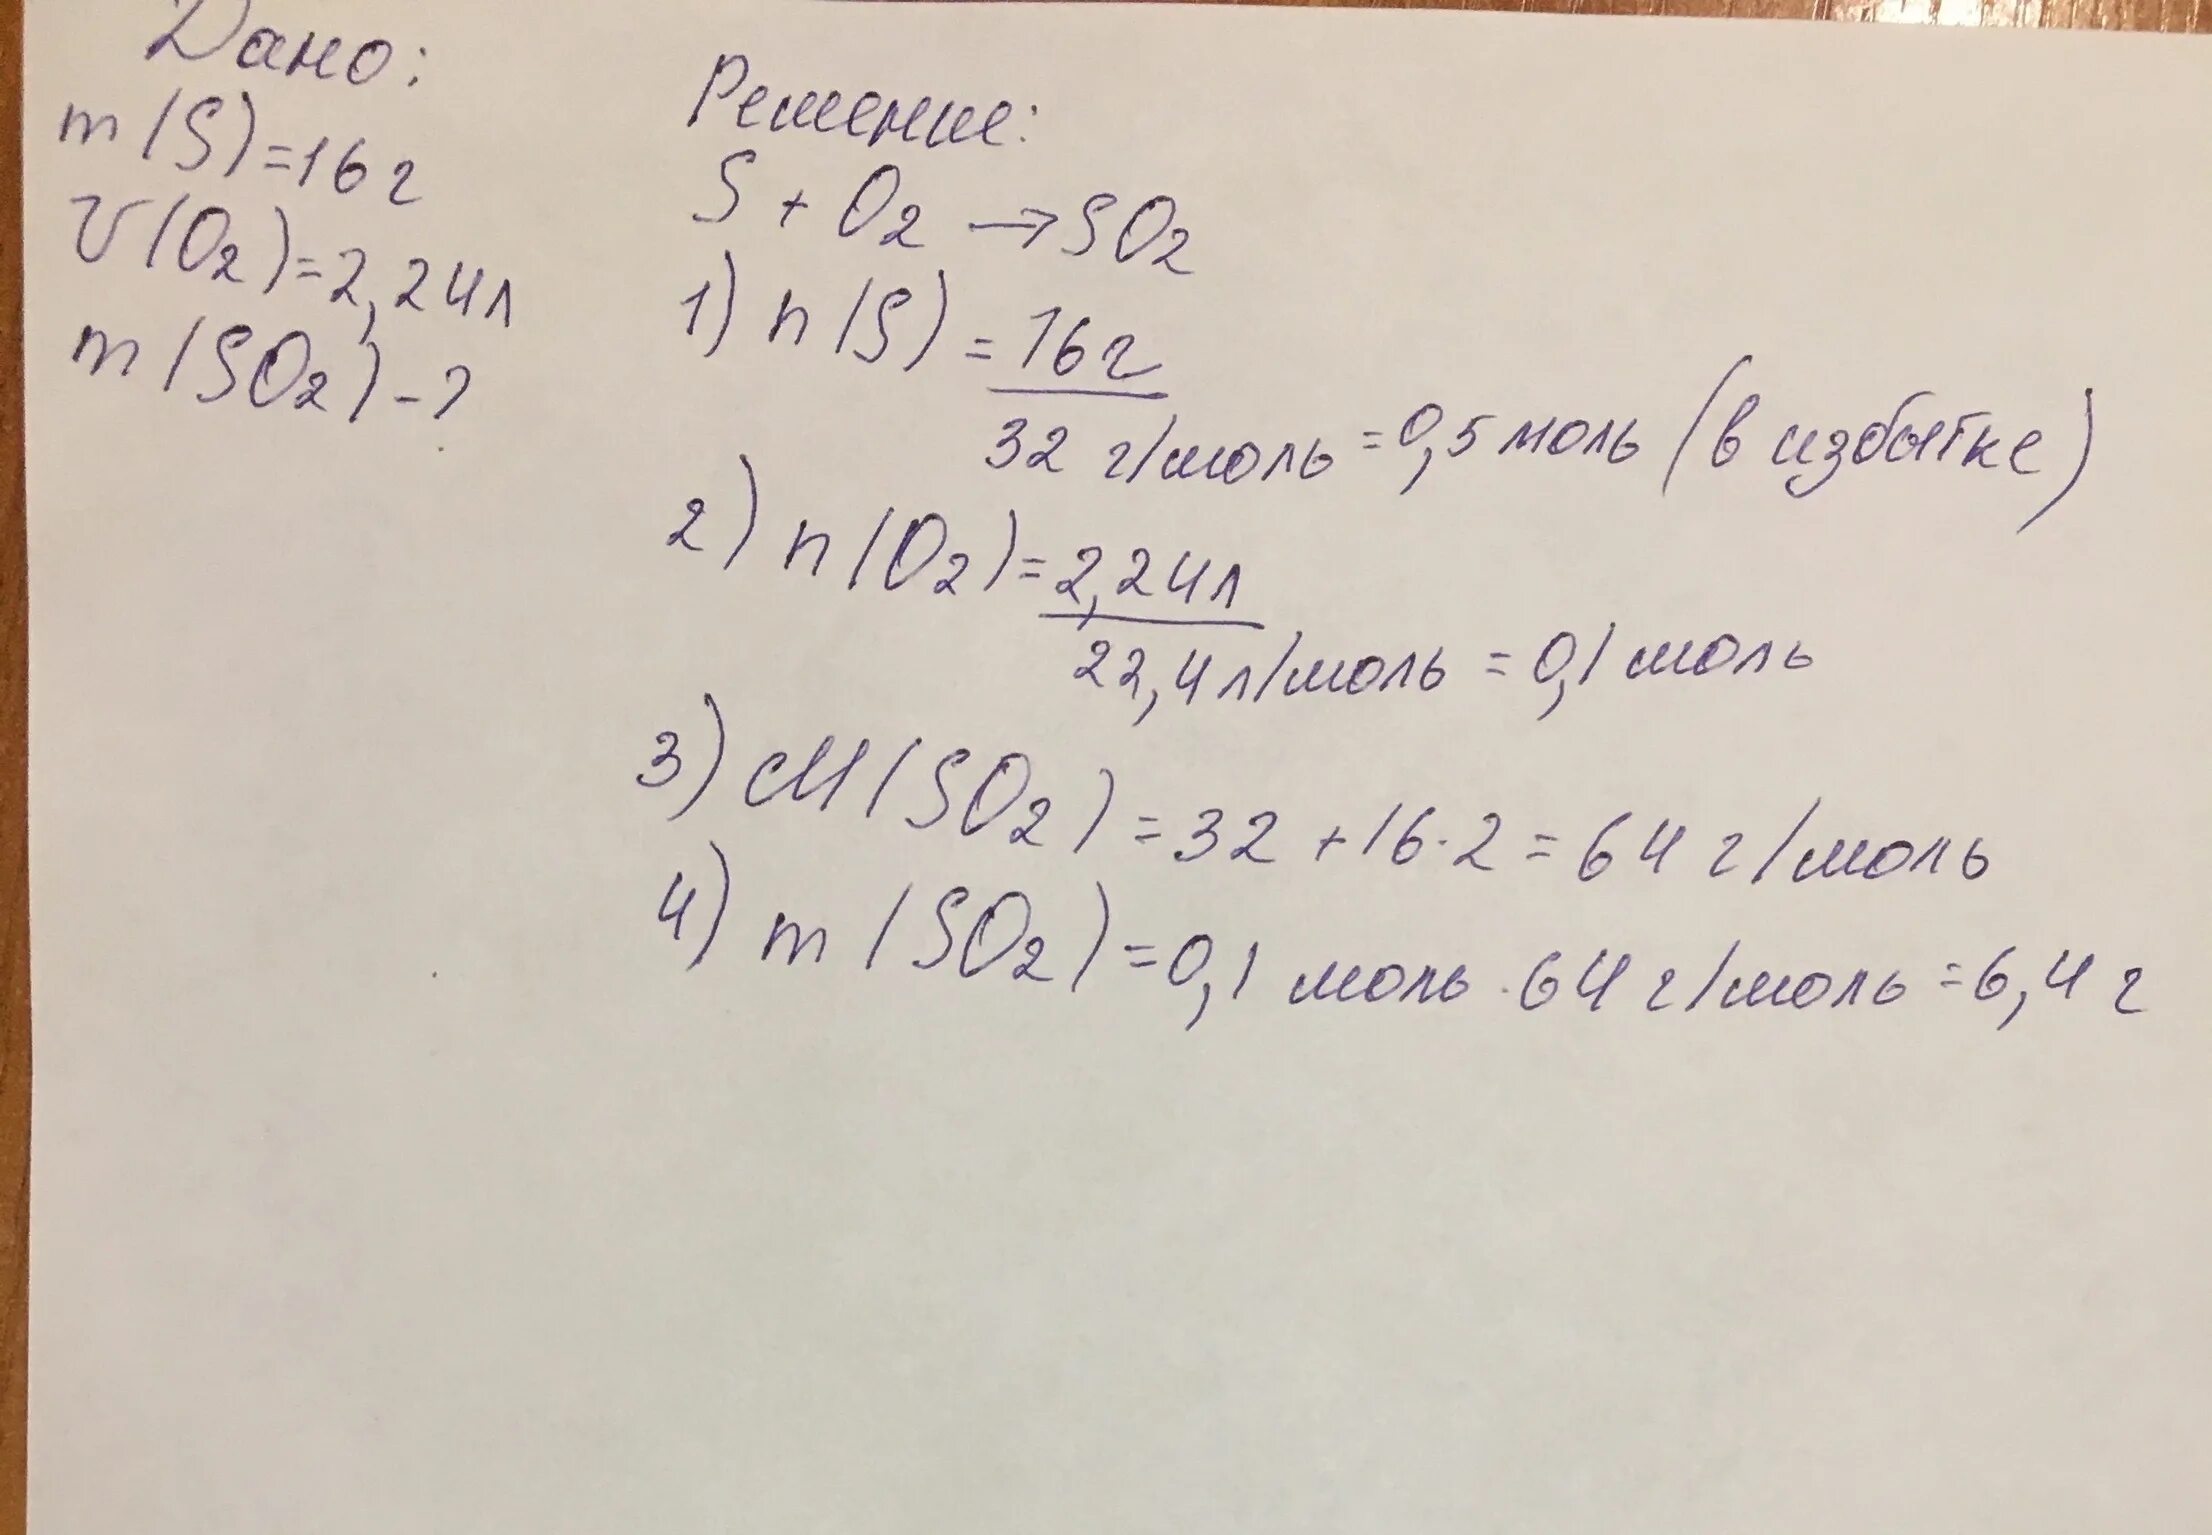 Дано:
m(S)=16г
V(O₂)=2,24л
m(SO₂)-?
Решение:
S + O₂ → SO₂
1) n(S) = 16г / 32 г/моль = 0,5 моль (в избытке)
2) n(O₂) = 2,24л / 22,4 л/моль = 0,1 моль
3) M(SO₂) = 32 + 16·2 = 64 г/моль
4) m(SO₂) = 0,1 моль · 64 г/моль = 6,4 г